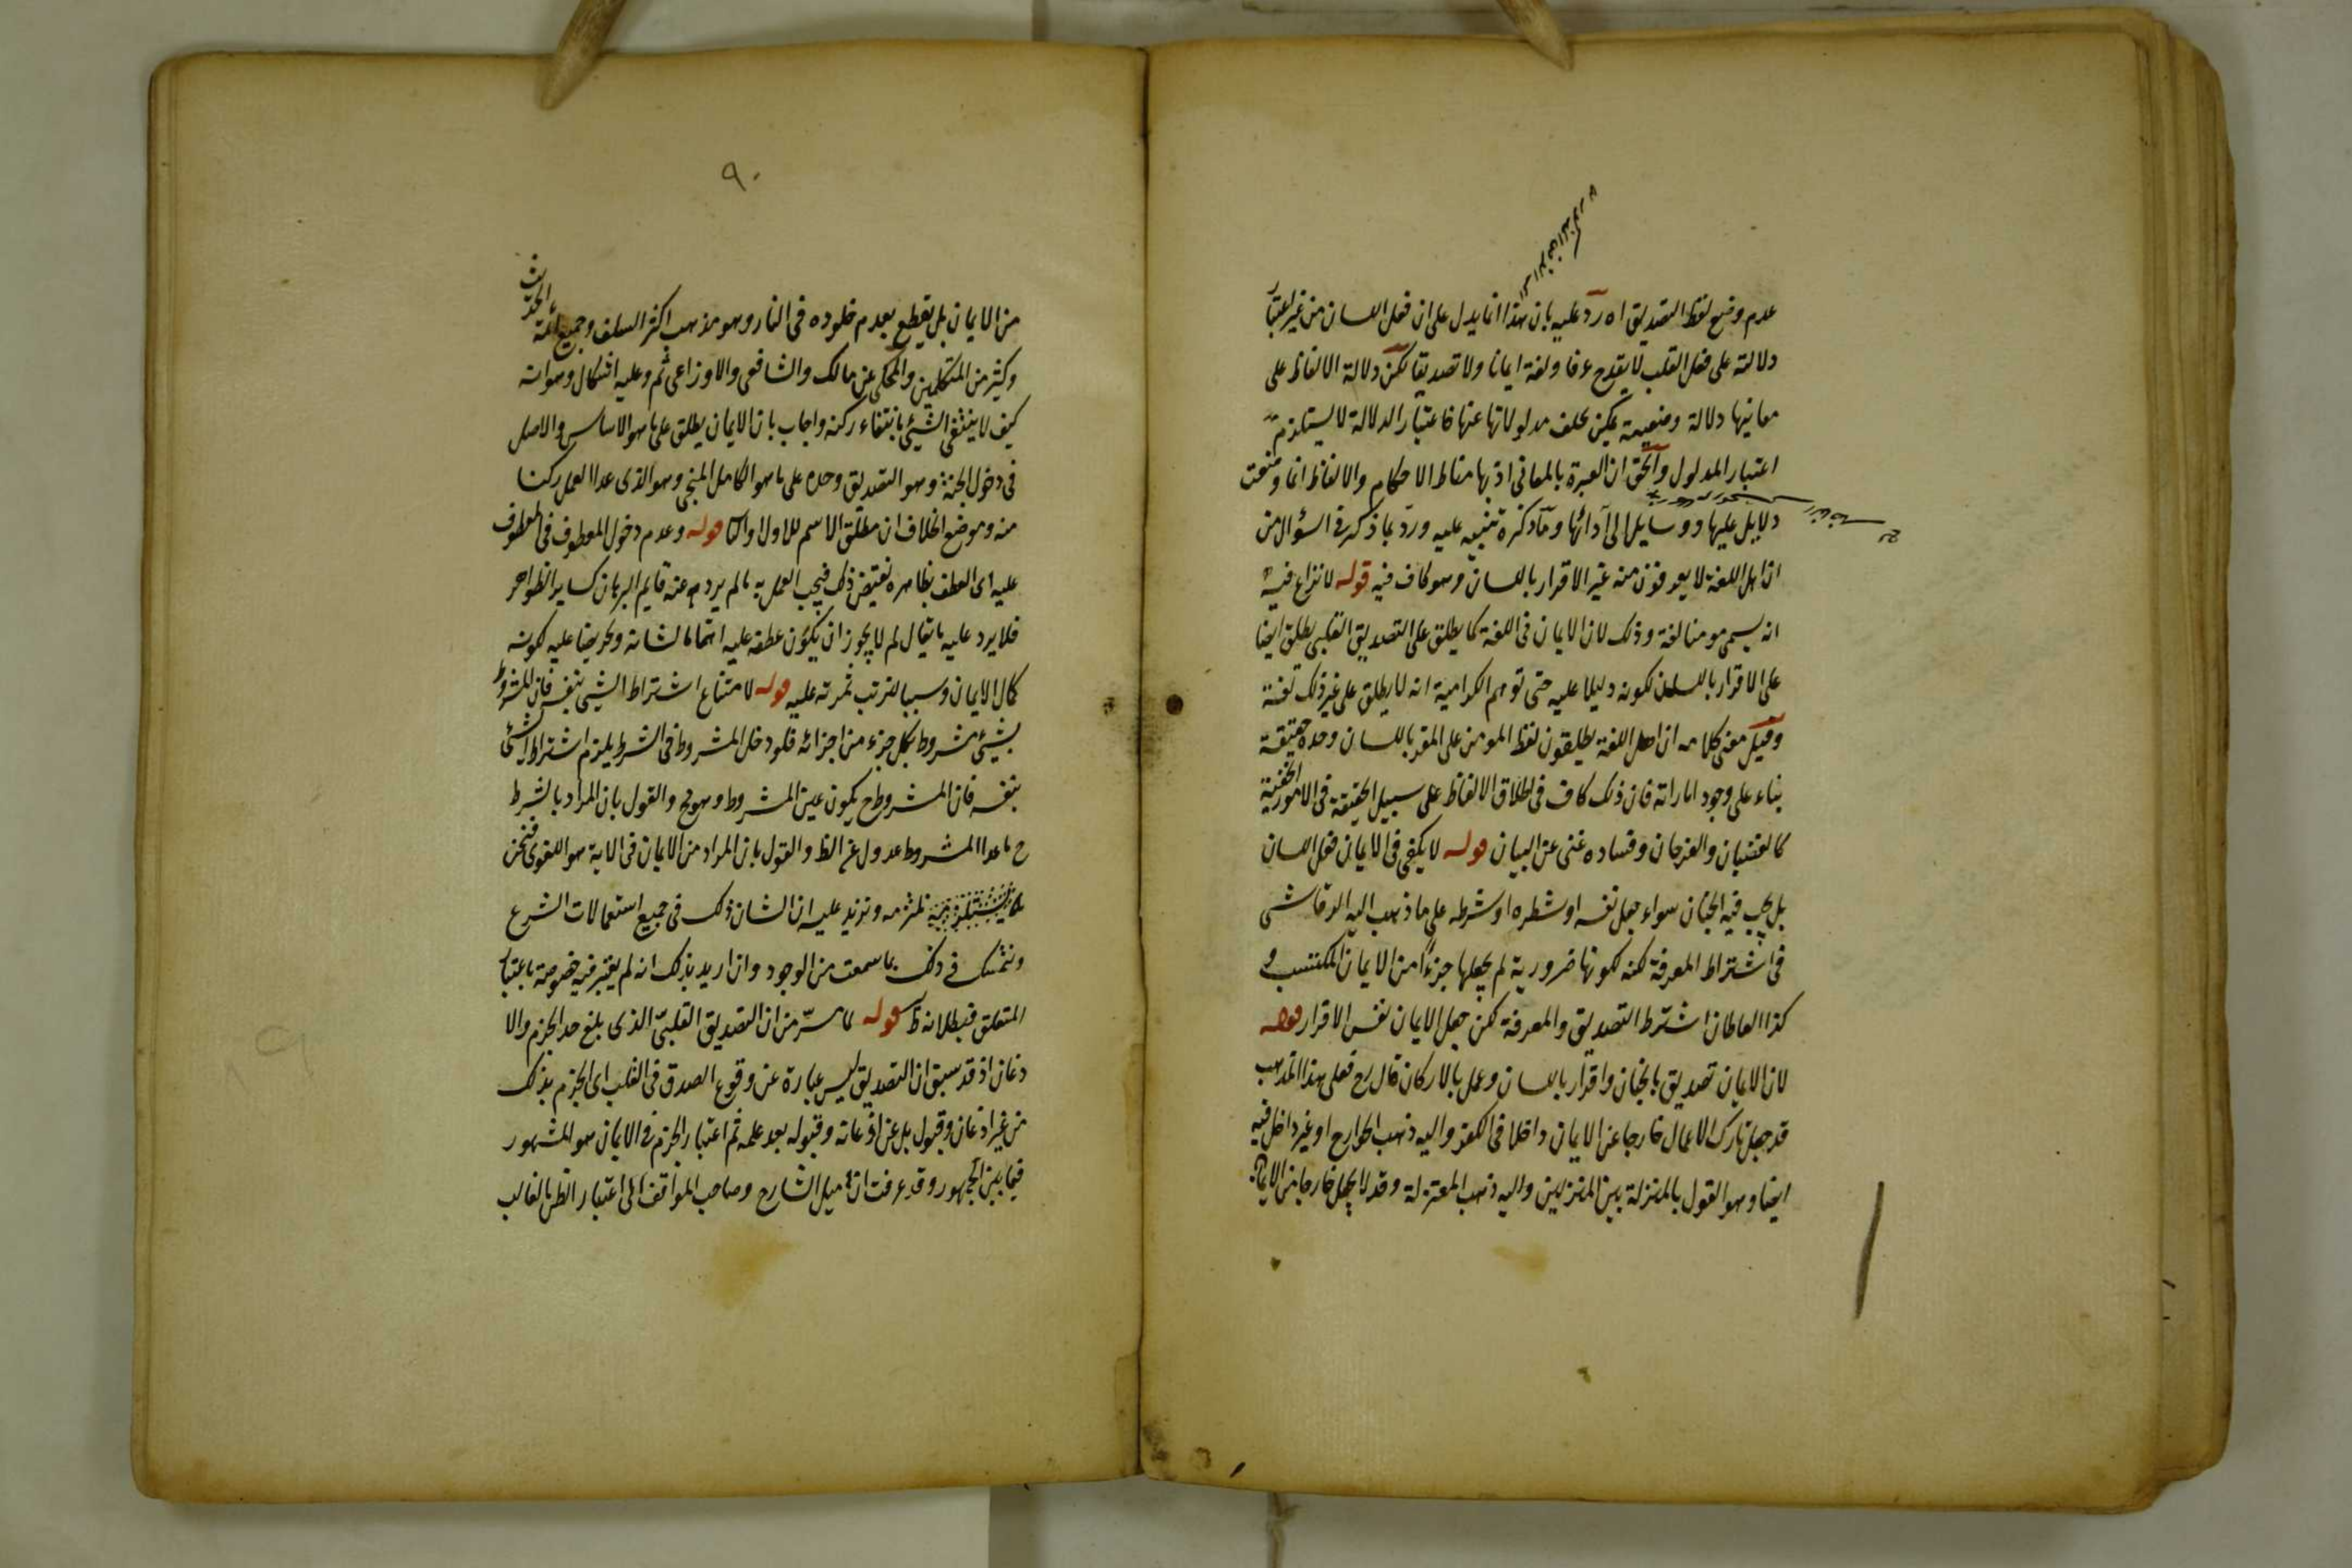 عدم وضع لفظ التصديق اه ردّ عليه بان هذا انما يدل على ان فعل اللسان من غير اعتبار
دلالته على فعل القلب لا يقدح عرفا ولغة ايمانا ولا تصديقا لكن دلالة الالفاظ على
معانيها دلالة وضعية يمكن تخلف مدلولاتها عنها فاعتبار الدلالة لا يستلزم
اعتبار المدلول والحق ان العبرة بالمعاني اذ بها مناط الاحكام والالفاظ انما وضعت
دلايل عليها ووسايل الى آدائها وما ذكره تنبيه عليه وردّ بما ذكر في السؤال من
ان اهل اللغة لا يعرفون منه غير الاقرار باللسان وهو كاف فيه قوله لا نزاع فيه
انه يسمى مومنا لغة وذلك لان الايمان في اللغة كما يطلق على التصديق القلبي يطلق ايضا
على الاقرار باللسان لكونه دليلا عليه حتى توهم الكرامية انه لا يطلق على غير ذلك لغة
وقيل معنى كلامه ان اهل اللغة يطلقون لفظ المومن على المقر باللسان وحده حقيقة
بناء على وجود اماراته فان ذلك كاف في اطلاق الالفاظ على سبيل الحقيقة في الامور الخفية
كالغضبان والفرحان وفساده غنى عن البيان قوله لا يكفى في الايمان فعل اللسان
بل يجب فيه الجنان سواء جعل نفسه او شطره او شرطه على ما ذهب اليه الرقاشى
في اشتراط المعرفة لكنه لكونها ضرورية لم يجعلها جزءًا من الايمان المكتسب و
كذا القطان اشترط التصديق والمعرفة لكن جعل الايمان نفس الاقرار قوله
لان الايمان تصديق بالجنان واقرار باللسان وعمل بالاركان قال رح فعلى هذا المذهب
قد جعل تارك الاعمال خارجا عن الايمان داخلا في الكفر واليه ذهب الخوارج او غير داخل فيه
ايضا وهو القول بالمنزلة بين المنزلين واليه ذهب المعتزلة وقد لا يجعل خارجا من الايمان
٩٠
من الايمان بل يقطع بعدم خلوده في النار وهو مذهب اكثر السلف وجميع ائمة الحديث
وكثير من المتكلمين والمحكى عن مالك والشافعى والاوزاعى ثم وعليه اشكال وهو انه
كيف لا ينتفى الشيئ بانتفاء ركنه واجاب بان الايمان يطلق على ما هو الاساس والاصل
في دخول الجنة وهو التصديق وحده على ما هو الكامل المنجى وهو الذى عدا العمل ركنا
منه وموضع الخلاف ان مطلق الاسم للاول او الثا قوله وعدم دخول المعطوف في المعطوف
عليه اى العطف بظاهره يقتضى ذلك فيجب العمل به ما لم يردع عنه قايم البرهان كساير الظواهر
فلا يرد عليه ما يقال لم لا يجوز ان يكون عطفه عليه اهتماما لشانه وتحريضا عليه لكونه
كمال الايمان وسببا لترتب ثمرته عليه قوله لامتناع اشتراط الشيئ بنفسه فان المشروط
بشيئ مشروط بكل جزء من اجزائه فلو دخل المشروط في الشرط يلزم اشتراط الشئ
بنفسه فان المشروط ح يكون عين المشروط وهو مح والقول بان المراد بالشرط
ح ما عدا المشروط عدول عن الظ والقول بان المراد من الايمان في الاية هو اللغوى فنحن
نلتزمه ونزيد عليه ان الشان ذلك في جميع استعمالات الشرع
ونتمسك في ذلك بما سمعت من الوجود وان اريد بذلك انه لم يعتبر فيه خصوصة باعتبار
المتعلق فبطلانه ظ قوله لما مرّ من ان التصديق القلبىّ الذى بلغ حد الجزم والا
ذعان اذ قد سبق ان التصديق ليس عبارة عن وقوع الصدق في القلب اى الجزم بذلك
من غير اذعان وقبول بل عن اذعانه وقبوله بعد علمه ثم اعتبار الجزم في الايمان هو المشهور
فيما بين الجمهور وقد عرفت ان ميل الشارح وصاحب المواقف الى اعتبار الظن الغالب